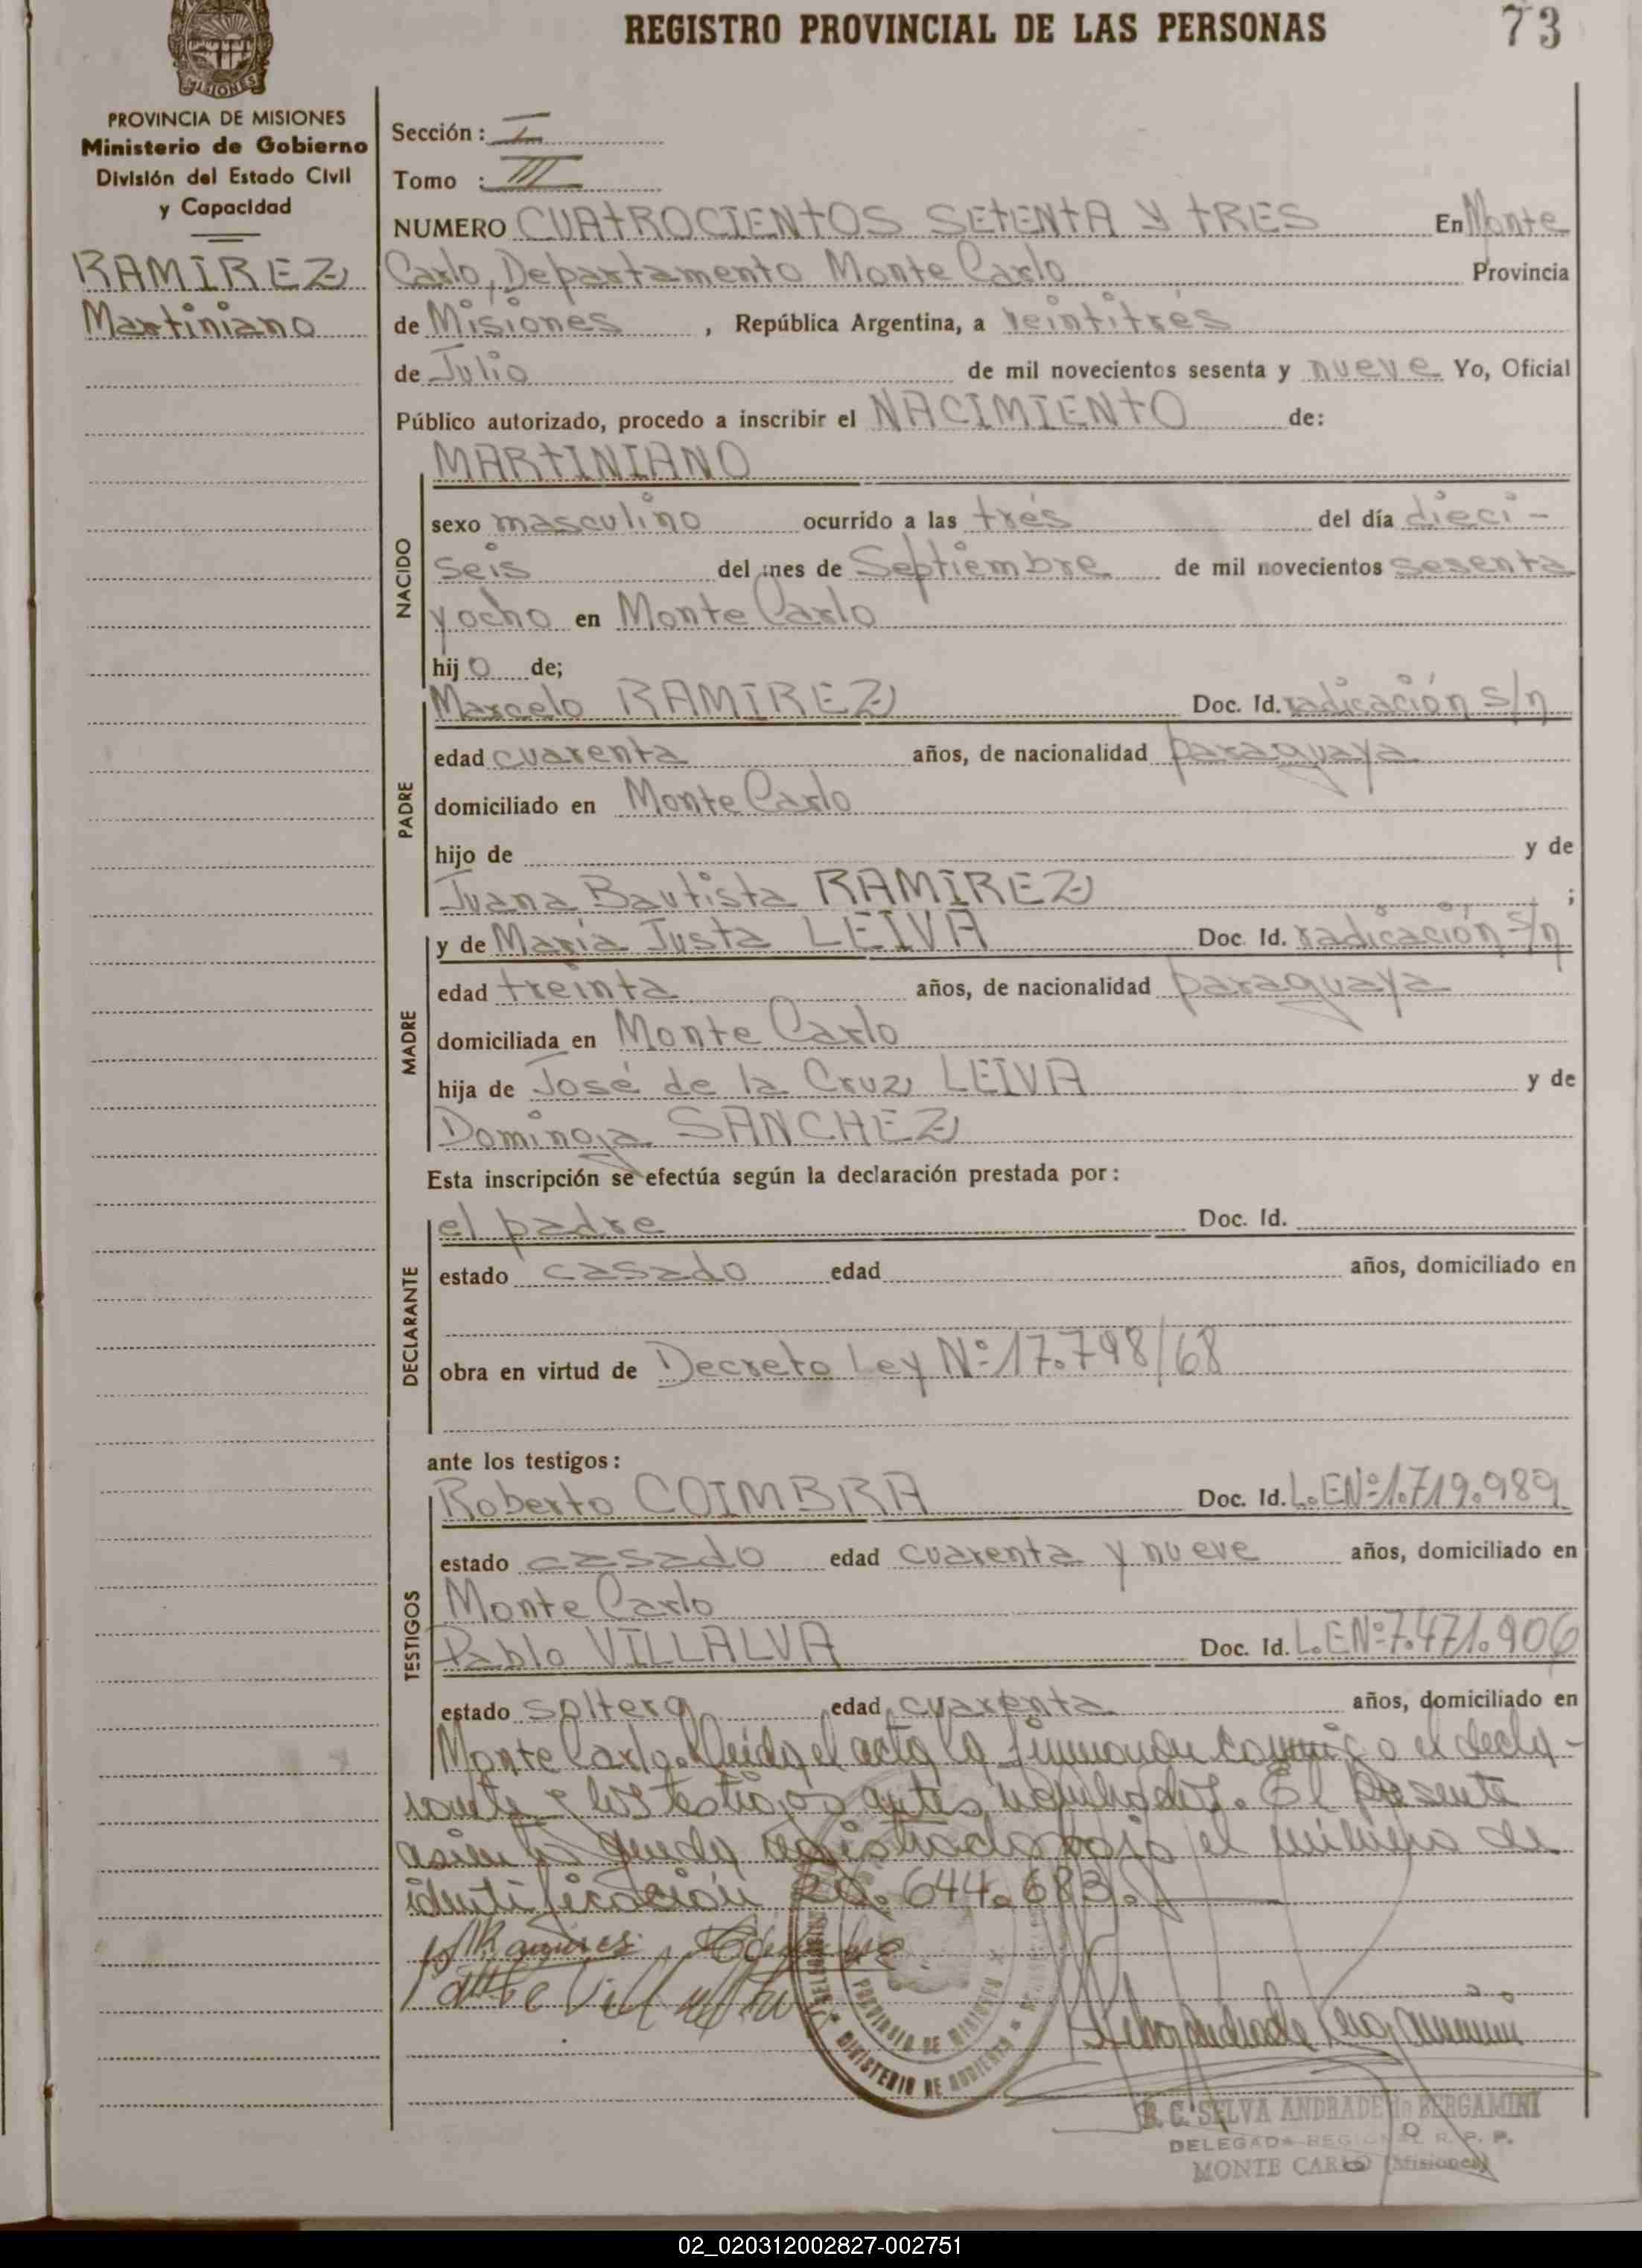 REGISTRO PROVINCIAL DE LAS PERSONAS
73
MISIONES
PROVINCIA DE MISIONES
Ministerio de Gobierno
División del Estado Civil
y Capacidad
RAMIREZ
Martiniano
Sección: I
Tomo : III
NUMERO CUATROCIENTOS SETENTA Y TRES En Monte
Carlo, Departamento Monte Carlo Provincia
de Misiones, República Argentina, a veintitrés
de Julio de mil novecientos sesenta y nueve Yo, Oficial
Público autorizado, procedo a inscribir el NACIMIENTO de:
NACIDO
MARTINIANO
sexo masculino ocurrido a las trés del día dieci-
seis del mes de Septiembre de mil novecientos sesenta
y ocho en Monte Carlo
hijo de;
PADRE
Marcelo RAMIREZ Doc. Id. radicación s/n
edad cuarenta años, de nacionalidad paraguaya
domiciliado en Monte Carlo
hijo de y de
Juana Bautista RAMIREZ ;
MADRE
y de María Justa LEIVA Doc. Id. radicación s/n
edad treinta años, de nacionalidad paraguaya
domiciliada en Monte Carlo
hija de José de la Cruz LEIVA y de
Dominga SANCHEZ
Esta inscripción se efectúa según la declaración prestada por:
DECLARANTE
el padre Doc. Id.
estado casado edad años, domiciliado en
obra en virtud de Decreto Ley Nº 17.798/68
ante los testigos:
TESTIGOS
Roberto COIMBRA Doc. Id. L.E.Nº 1.719.989
estado casado edad cuarenta y nueve años, domiciliado en
Monte Carlo
Pablo VILLALVA Doc. Id. L.E.Nº 7.471.906
estado soltero edad cuarenta años, domiciliado en
Monte Carlo. Leida el acta la firmaron conmigo el decla-
rante y los testigos antes nombrados. El presente
asiento queda registrado bajo el número de
identificación 20.644.683.
Ramires
PROVINCIA DE MISIONES
MINISTERIO DE GOBIERNO
B. C. SELVA ANDRADE de BERGAMINI
DELEGADA REGIONAL R. P. P.
MONTE CARLO (Misiones)
02_020312002827-002751